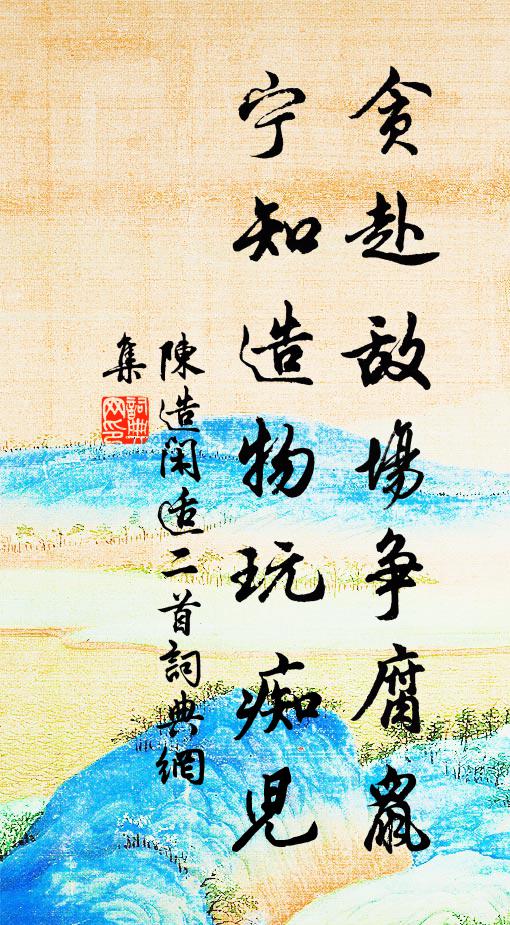 贪赴敌場争腐鼠
宁知造物玩痴児
陳造闲适二首詞典網
集
詞典网印